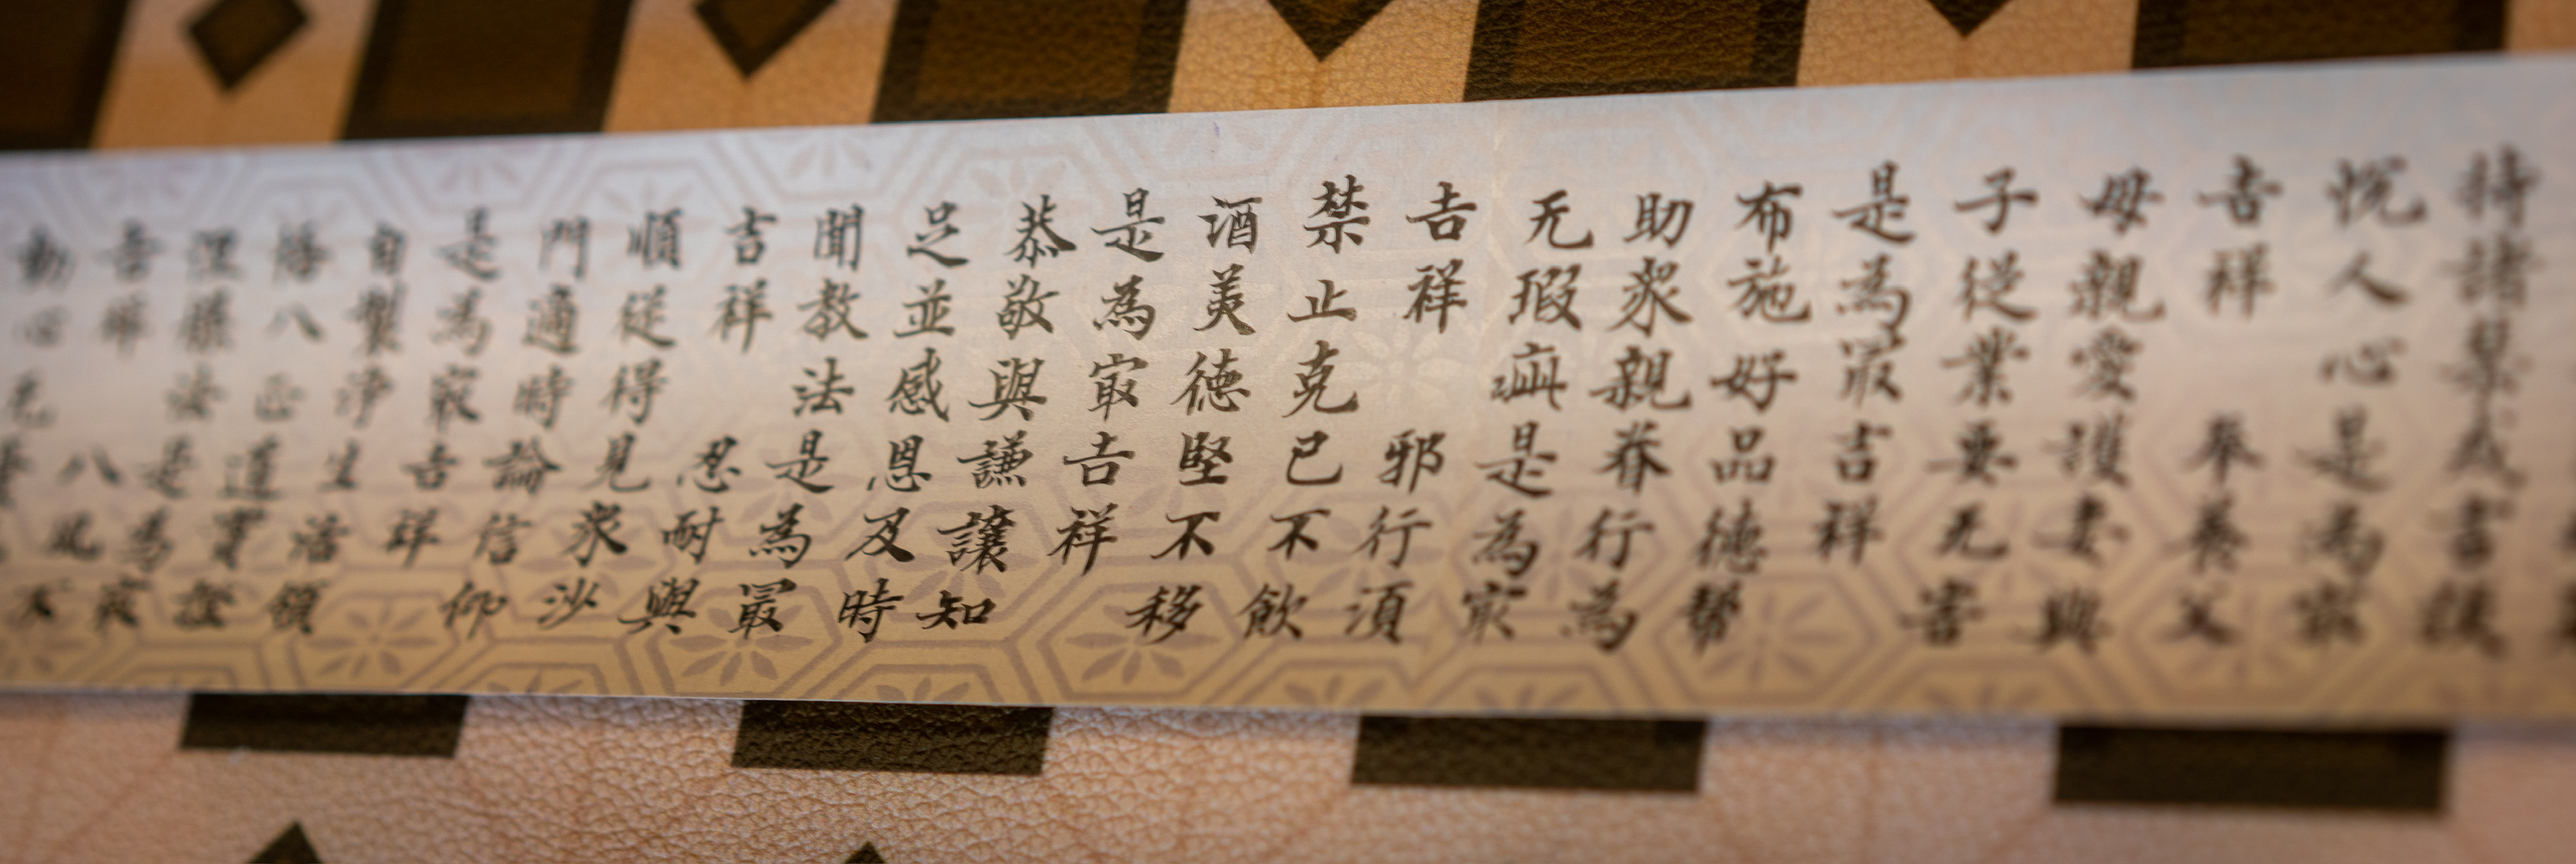 持諸禁戒言談
悅人心是為冣
吉祥 奉養父
母親愛護妻與
子從業要无害
是為冣吉祥
布施好品德幫
助衆親眷行為
无瑕疵是為冣
吉祥 邪行須
禁止克己不飲
酒美德堅不移
是為冣吉祥
恭敬與謙讓知
足並感恩及時
聞教法是為最
吉祥 忍耐與
順從得見衆沙
門適時論信仰
是為冣吉祥
自製淨生活領
悟八正道實證
涅槃法是為冣
吉祥 八風不
動心无